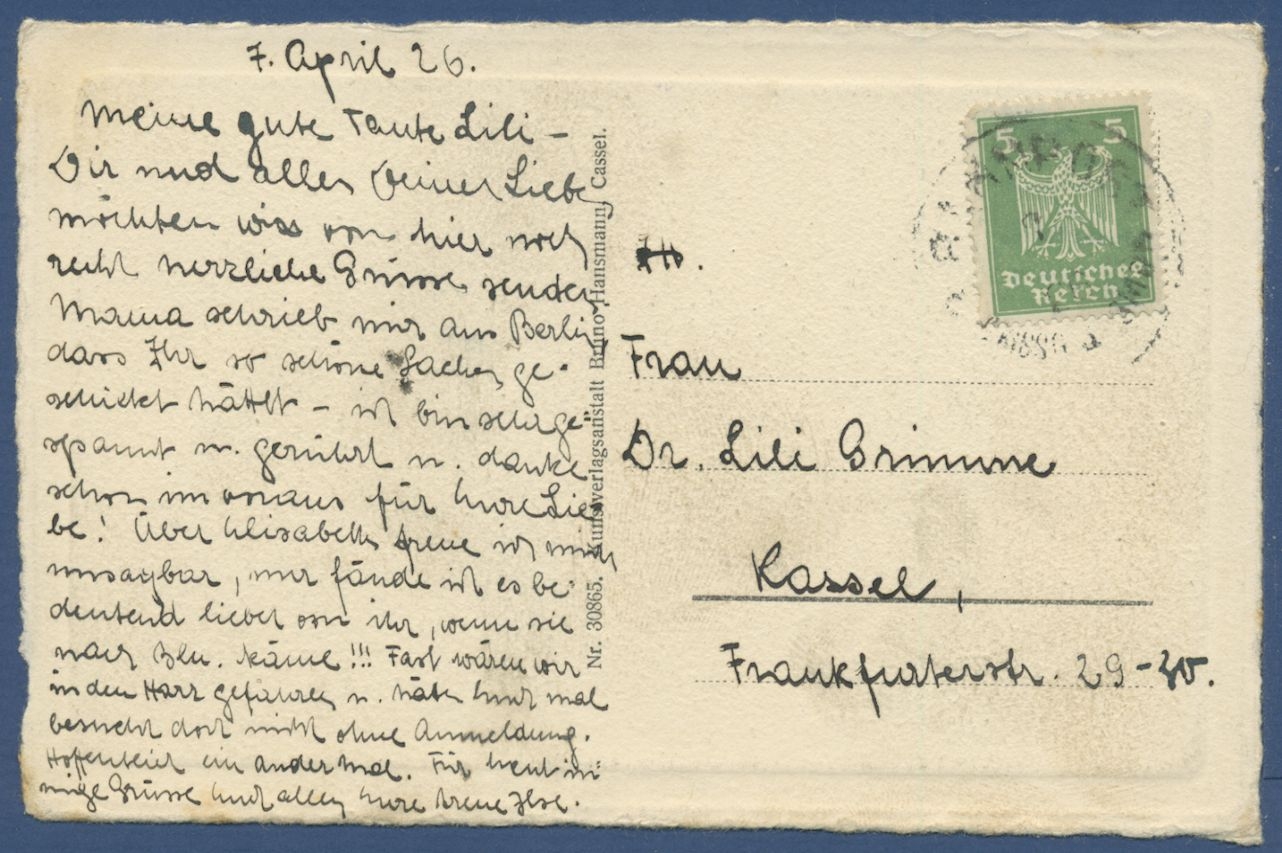 7. April 26.
Meine gute Tante Lili –
Dir und allen Deinen Lieben
möchten wir von hier noch
recht herzliche Grüsse senden
Mama schrieb mir aus Berlin,
dass Ihr so schöne Sachen ge-
schickt hättet – ich bin sehr ge-
spannt u. gerührt u. danke
schon im voraus für Eure Lie-
be! Über Elisabeth freue ich mich
unsagbar, nur fände ich es be-
deutend lieber von ihr, wenn sie
nach Bln. käme!!! Fast wären wir
in den Harz gefahren u. hätten Euch mal
besucht doch nicht ohne Anmeldung.
Hoffentlich ein ander Mal. Für heut in-
nige Grüsse Euch allen Eure treue Ilse.
Nr. 30865. Kunstverlagsanstalt Bruno Hansmann, Cassel.
5 5
Deutsches
Reich
Frau
Dr. Lili Grimme
Kassel,
Frankfurterstr. 29-30.